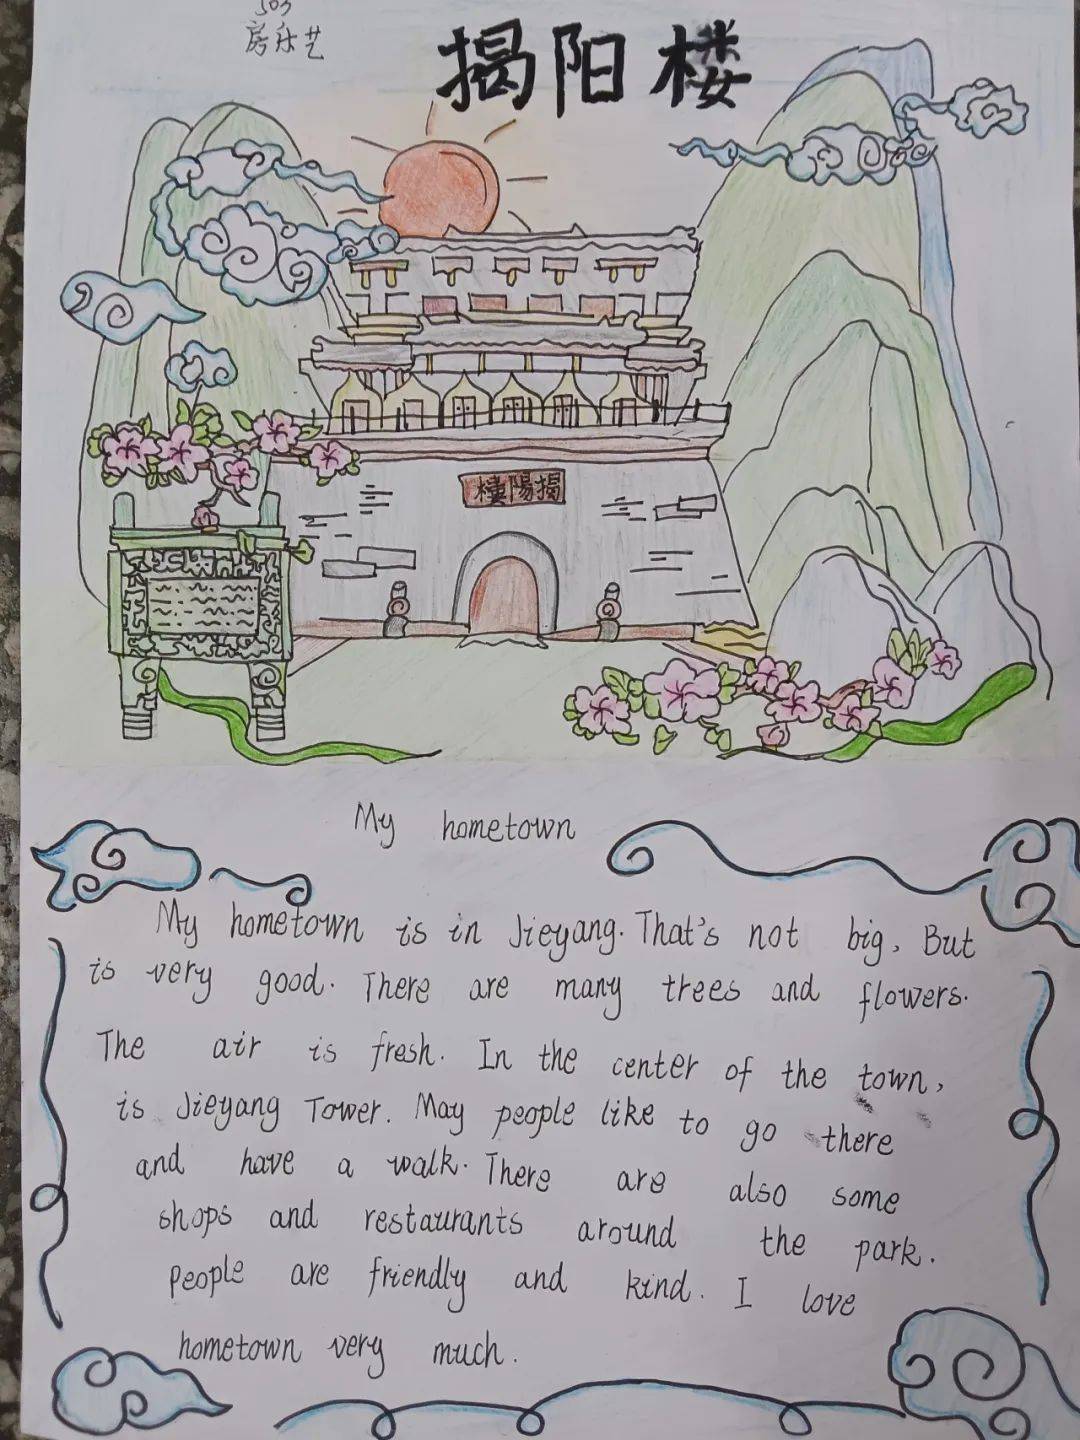 503
房乐艺
揭阳楼
樓陽揭
My hometown
My hometown is in Jieyang. That's not big, But
is very good. There are many trees and flowers.
The air is fresh. In the center of the town,
is Jieyang Tower. May people like to go there
and have a walk. There are also some
shops and restaurants around the park.
People are friendly and kind. I love
hometown very much.